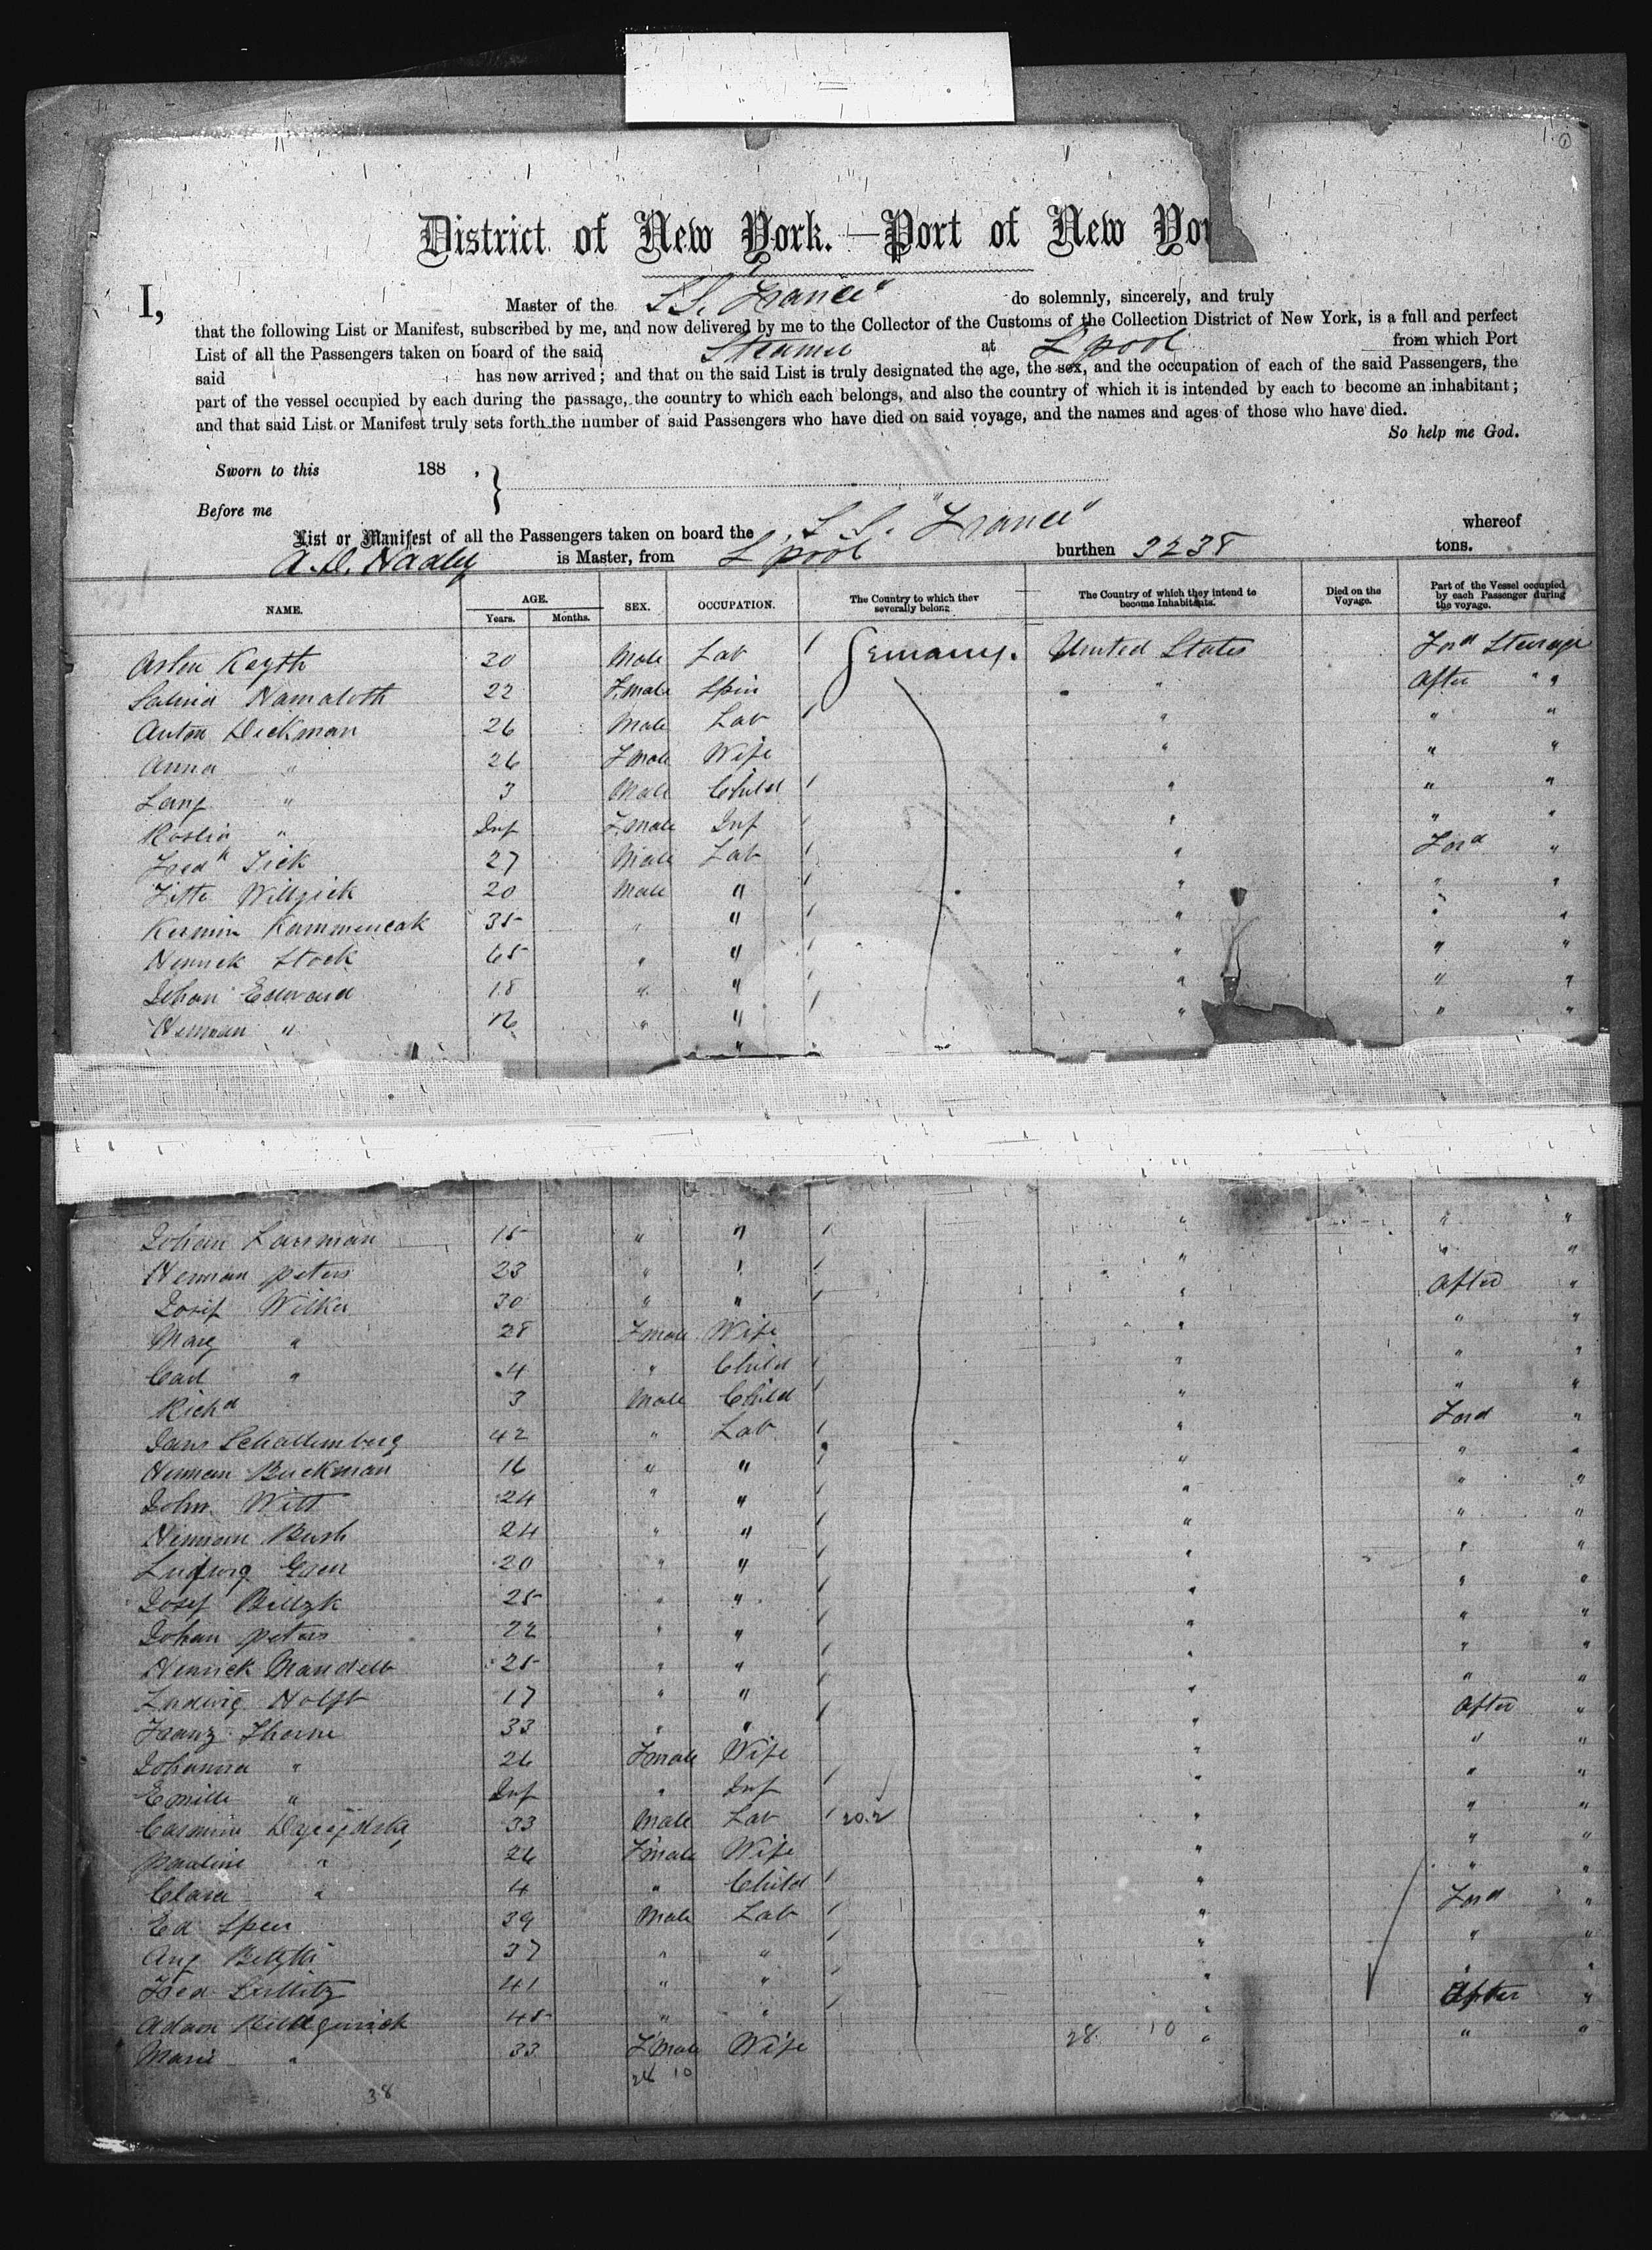 District of New York.—Port of New Yor
I, Master of the S.S. "France" do solemnly, sincerely, and truly
that the following List or Manifest, subscribed by me, and now delivered by me to the Collector of the Customs of the Collection District of New York, is a full and perfect
List of all the Passengers taken on board of the said Steamer at L'pool from which Port
said has now arrived; and that on the said List is truly designated the age, the sex, and the occupation of each of the said Passengers, the
part of the vessel occupied by each during the passage, the country to which each belongs, and also the country of which it is intended by each to become an inhabitant;
and that said List or Manifest truly sets forth the number of said Passengers who have died on said voyage, and the names and ages of those who have died.
So help me God.
Sworn to this 188 ,
Before me
List or Manifest of all the Passengers taken on board the S.S. "France" whereof
A. D. Hadley is Master, from L'pool burthen 3238 tons.
NAME. AGE. Years. Months. SEX. OCCUPATION. The Country to which they severally belong The Country of which they intend to become Inhabitants. Died on the Voyage. Part of the Vessel occupied by each Passenger during the voyage.
Kayth 20 Male Lab / Germany. United States Ford Steerage
22 Female Spin " After " "
Anton Dickman 26 Male Lab / " " "
Anna " 26 Female Wife " " "
" 3 Male Child / " " "
" Inf Female Inf / " " "
Fredk 27 Male Lab / " Ford "
20 Male " / " " "
35 " " / " " "
Stock 65 " " / " " "
Johan Edward 18 " " / " " "
Herman " 16 " " / " " "
"
Johan Larsman 15 " " / " " "
Herman peters 23 " " / " " "
Josif Wilker 30 " " / " After "
Mary " 28 Female Wife " " "
" 4 " Child / " " "
Richd 3 Male Child / " " "
42 " Lab / " Ford "
Herman Buckman 16 " " / " " "
John Witt 24 " " / " " "
Herman Bush 24 " " / " " "
Ludwig 20 " " / " " "
Josef 25 " " / " " "
Johan peters 22 " " / " " "
Henrick 25 " " / " " "
Ludwig Holst 17 " " / " " "
Franz Thorne 33 " " / " After "
Johanna " 26 Female Wife " " "
Emilie " Inf " Inf / " " "
33 Male Lab / 20.2 " " "
pauline " 26 Female Wife " " "
Clara " 4 " Child / " " "
Ed 39 Male Lab / " Ford "
Aug 37 " " / " " "
Fred 41 " " / " " "
Adam 45 " " / " After "
Marie " 33 Female Wife 28 10 " " "
38 28 10